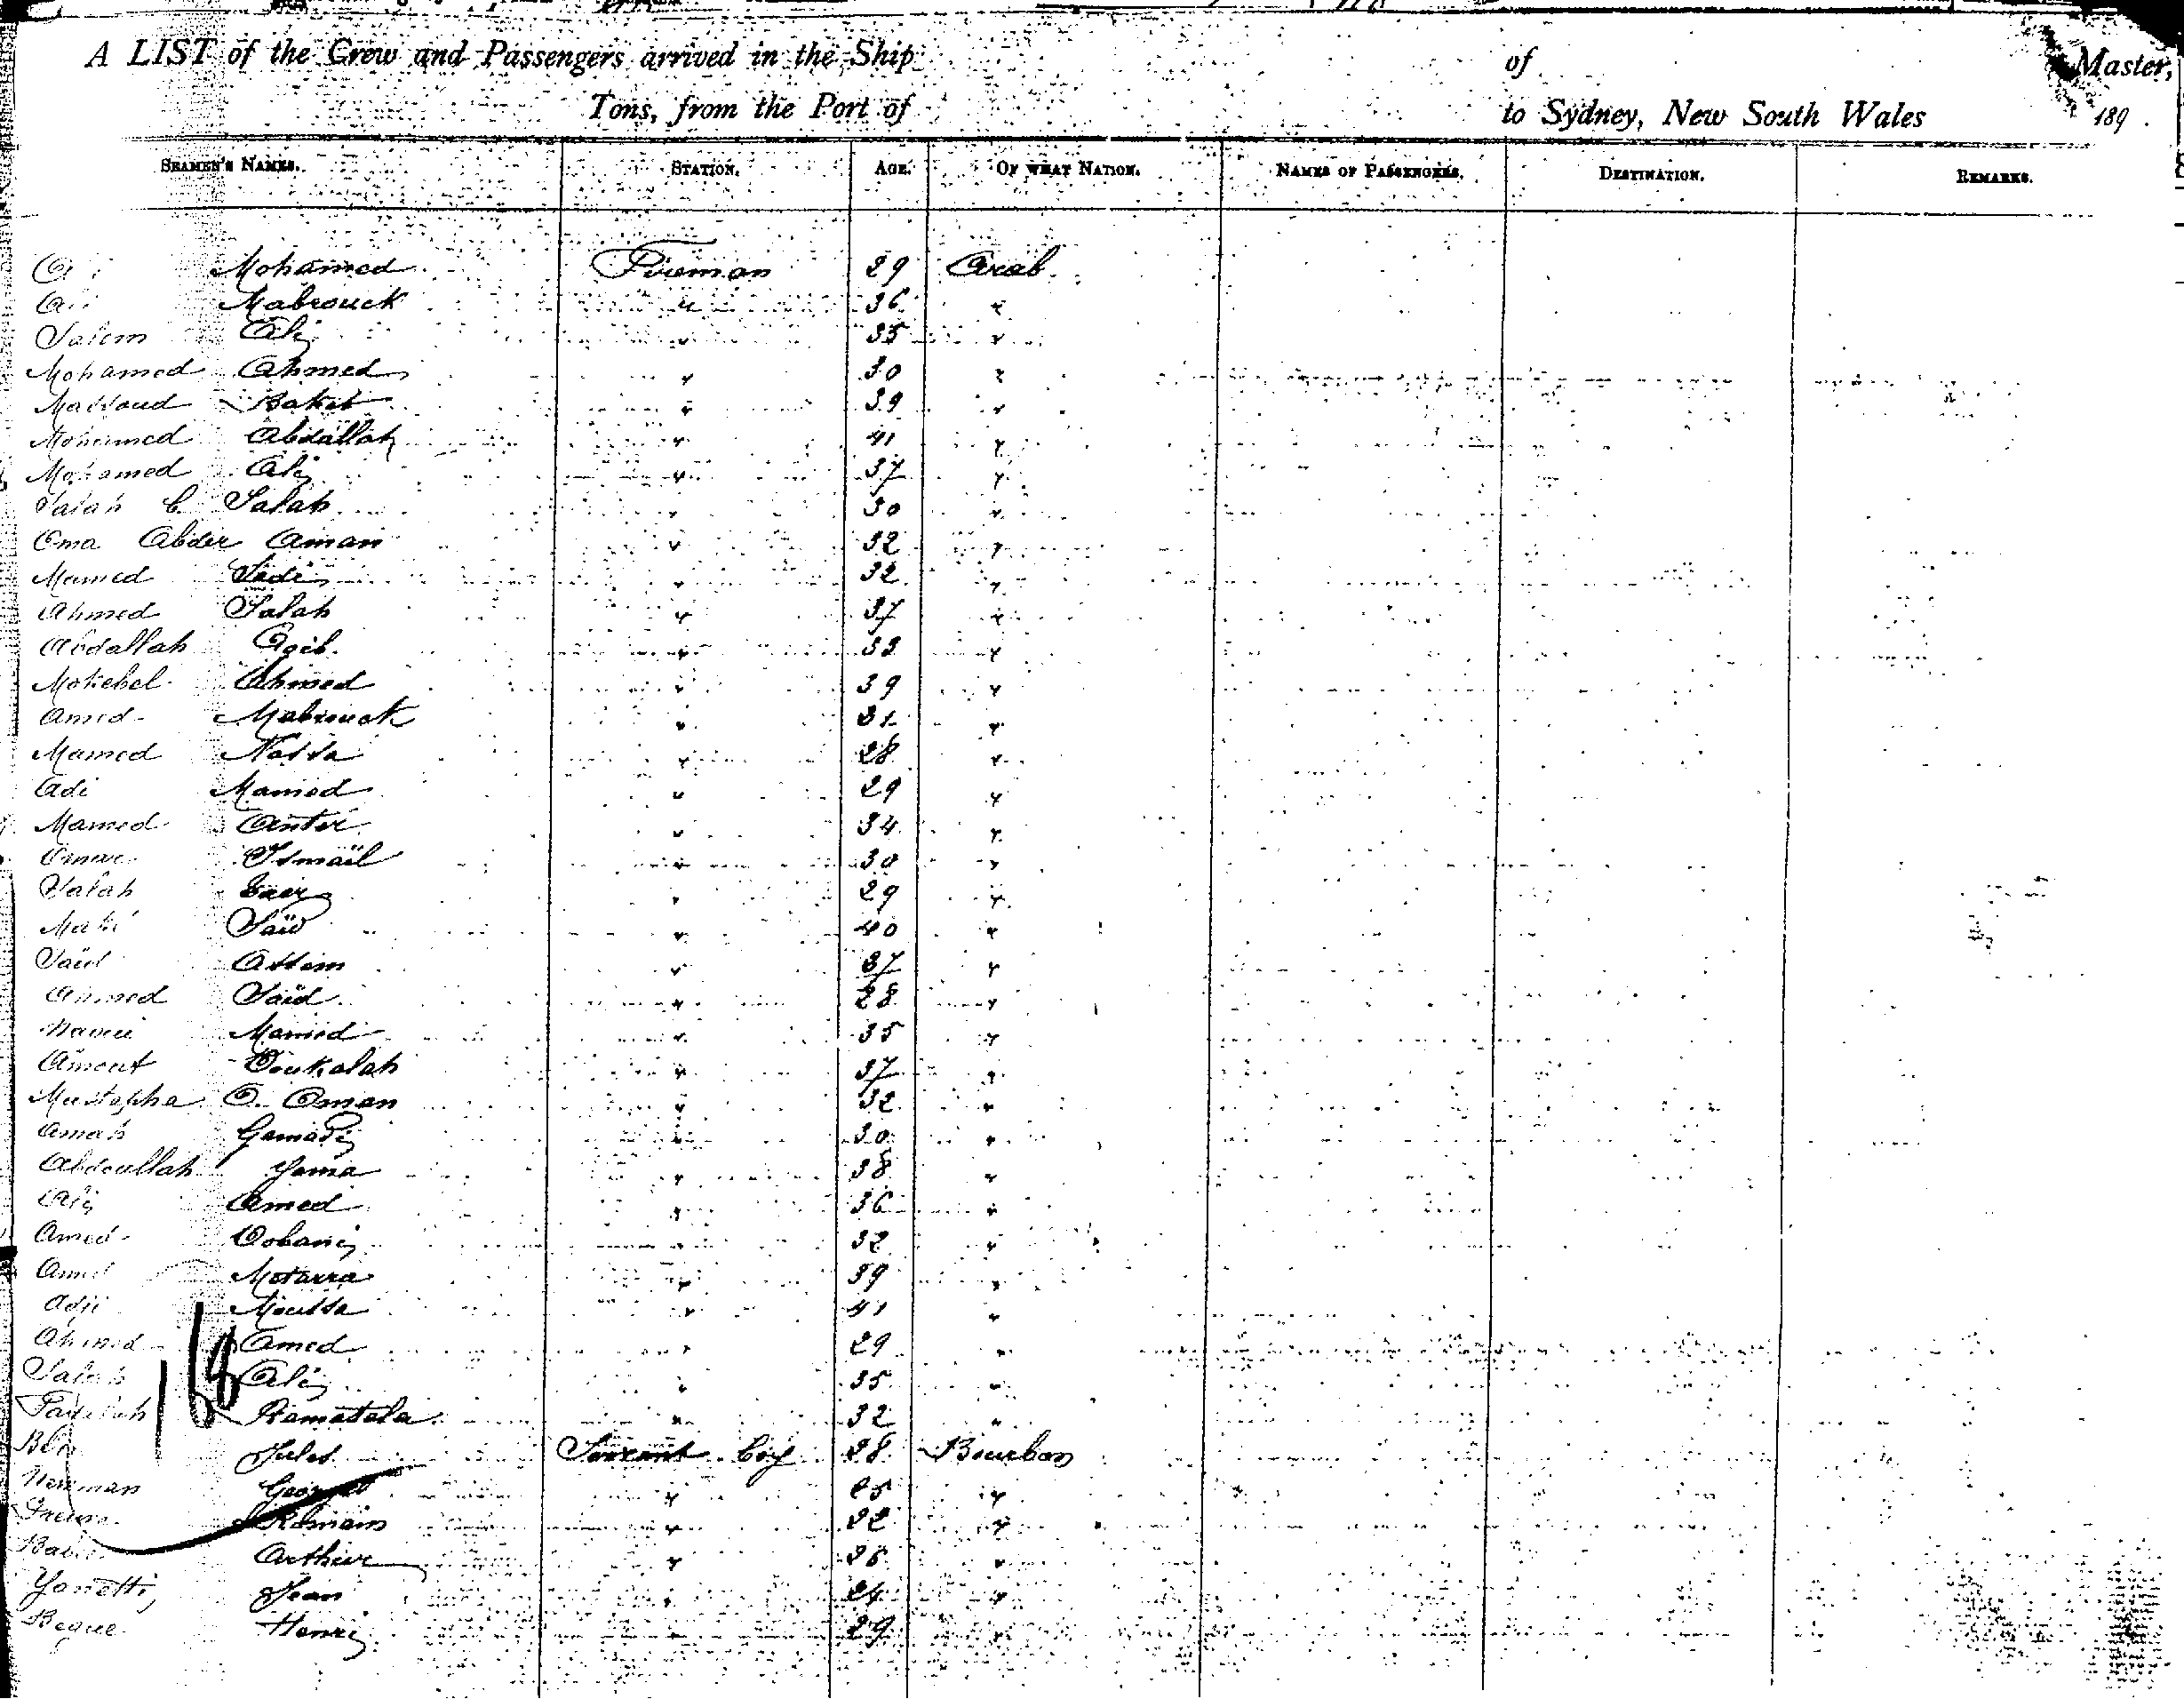 A LIST of the Crew and Passengers arrived in the Ship of Master,
Tons, from the Port of to Sydney, New South Wales 189 .
SEAMEN'S NAMES. STATION. AGE. OF WHAT NATION. NAMES OF PASSENGERS. DESTINATION. REMARKS.
Mohamed Fireman 29 Arab
Mabrouck " 36 "
Salem Ali " 35 "
Mohamed Ahmed " 30 "
Massoud Baket " 39 "
Mohamed Abdallah " 41 "
Mohamed Ali " 37 "
Salah C. Salah " 30 "
Oma Abder Aman " 32 "
Mamed Sadi " 32 "
Ahmed Salah " 37 "
Abdallah " 33 "
Mokebel Ahmed " 39 "
Amed Mabrouck " 31 "
Mamed Nassa " 28 "
Adi Mamed " 29 "
Mamed Anter " 34 "
Omar Ismaïl " 30 "
Salah " 29 "
Saïd " 40 "
Saïd Assem " 37 "
Ahmed Saïd " 28 "
Mamed " 35 "
Amout Doukalah " 37 "
Mustapha O. Oman " 32 "
Amah Gamadi " 30 "
Abdoullah Jama " 38 "
Ali Amed " 36 "
Amed Dobani " 32 "
Amed Motarra " 39 "
Adji Moussa " 41 "
Ahmed Amed " 29 "
Salah Ali " 35 "
Ramatala " 32 "
Jules Servant boy 28 Bourbon
Newman Georges " 25 "
Romain " 22 "
Arthur " 26 "
Yonetti, Jean " 24 "
Beque Henri " 29 "